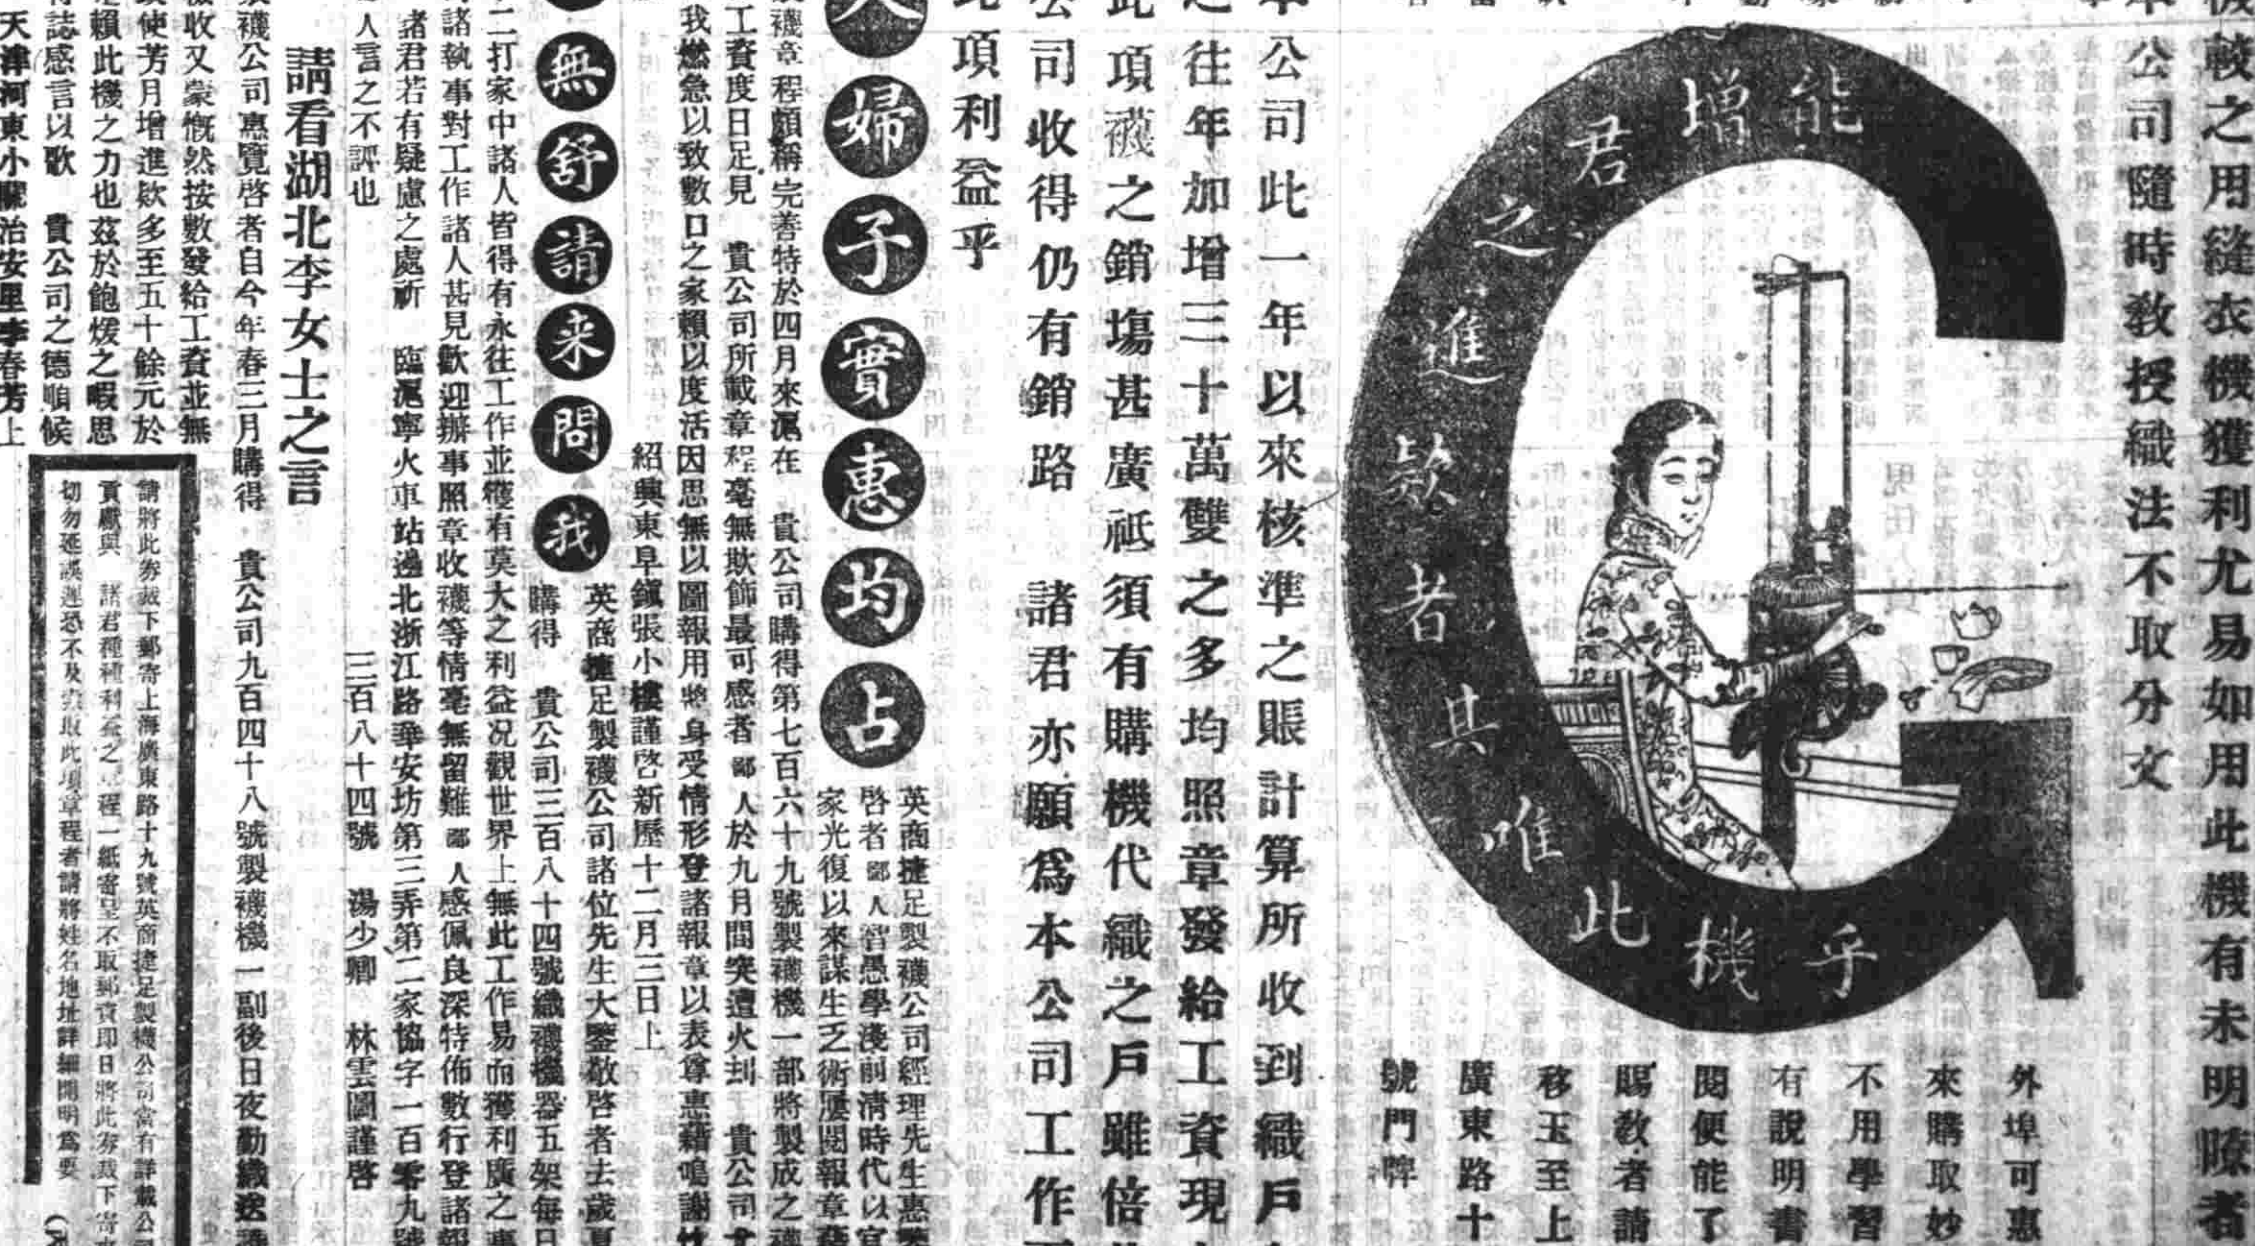 機較之用縫衣機獲利尤易如用此機有未明暸者
本公司隨時敎授織法不取分文
能增君之進欵者其唯此機乎
外埠可惠
來購取妙
不用學習
有說明書
閱便能了
賜敎者請
移玉至上
廣東路十
號門牌
本公司此一年以來核準之賬計算所收到織戶
之往年加增三十萬雙之多均照章發給工資現
此項襪之銷塲甚廣祗須有購機代織之戶雖倍
公司收得仍有銷路 諸君亦願爲本公司工作
此項利益乎
婦子實惠均占
英商捷足製襪公司經理先生惠
啓者鄙人智愚學淺前清時代以官
家光復以來謀生乏術屢閱報章
襪章程頗稱完善特於四月來滬在 貴公司購得第七百六十九號製襪機一部將製成之襪
工資度日足見 貴公司所載章程毫無欺飾最可感者鄙人於九月間突遭火刦 貴公司尤
我燃急以致數口之家賴以度活因思無以圖報用將身受情形登諸報章以表尊惠藉鳴謝
紹興東阜鎭張小樓謹啓新歷十二月三日上
無舒請来問我
英商捷足製襪公司諸位先生大鑒敬啓者去歲夏
購得 貴公司三百八十四號織襪機器五架每日
二打家中諸人皆得有永往工作並獲有莫大之利益况觀世界上無此工作易而獲利廣之事
諸執事對工作諸人甚見歡迎辦事照章收襪等情毫無留難鄙人感佩良深特佈數行登諸報
諸君若有疑慮之處祈 臨滬寧火車站邊北浙江路華安坊第三弄第二家協字一百零九號
人言之不謬也 三百八十四號 湯少卿 林雲圖謹啓
請看湖北李女士之言
襪公司惠覽啓者自今年春三月購得 貴公司九百四十八號製襪機一副後日夜勤織送
收又蒙慨然按數發給工資並無
使芳月增進欵多至五十餘元於
賴此機之力也茲於飽煖之暇思
誌感言以歌 貴公司之德順候
天津河東小關治安里李春芳上
請將此劵裁下郵寄上海廣東路十九號英商捷足製襪公司當有詳載公司
貢獻與 諸君種種利益之章程一紙寄呈不取郵資即日將此劵裁下寄
切勿遲誤遲恐不及索取此項章程者請將姓名地址詳細開明爲要